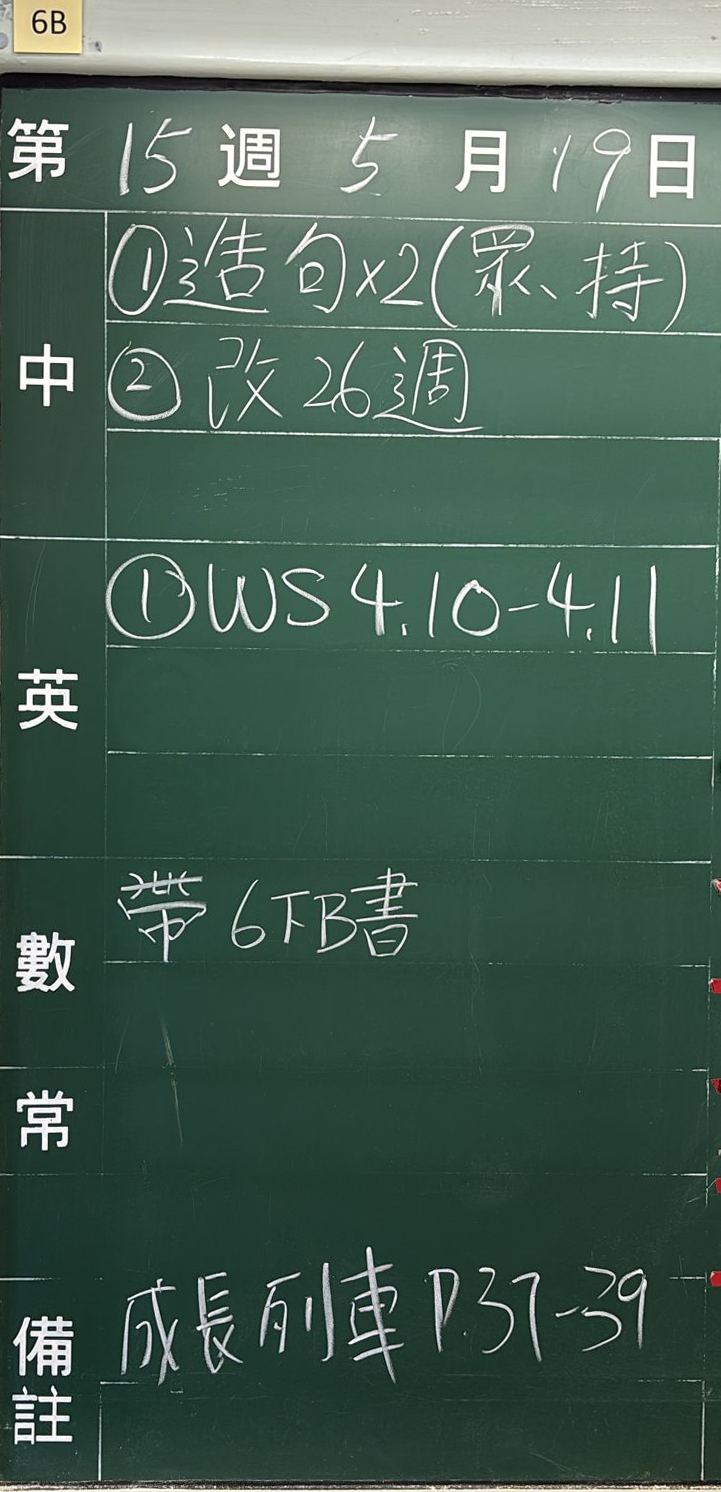 6B
第 15 週 5 月 19 日
中
①造句×2(眾、持)
②改26週
英
①WS 4.10-4.11
數
帶6下B書
常
備註
成長列車 P.37-39